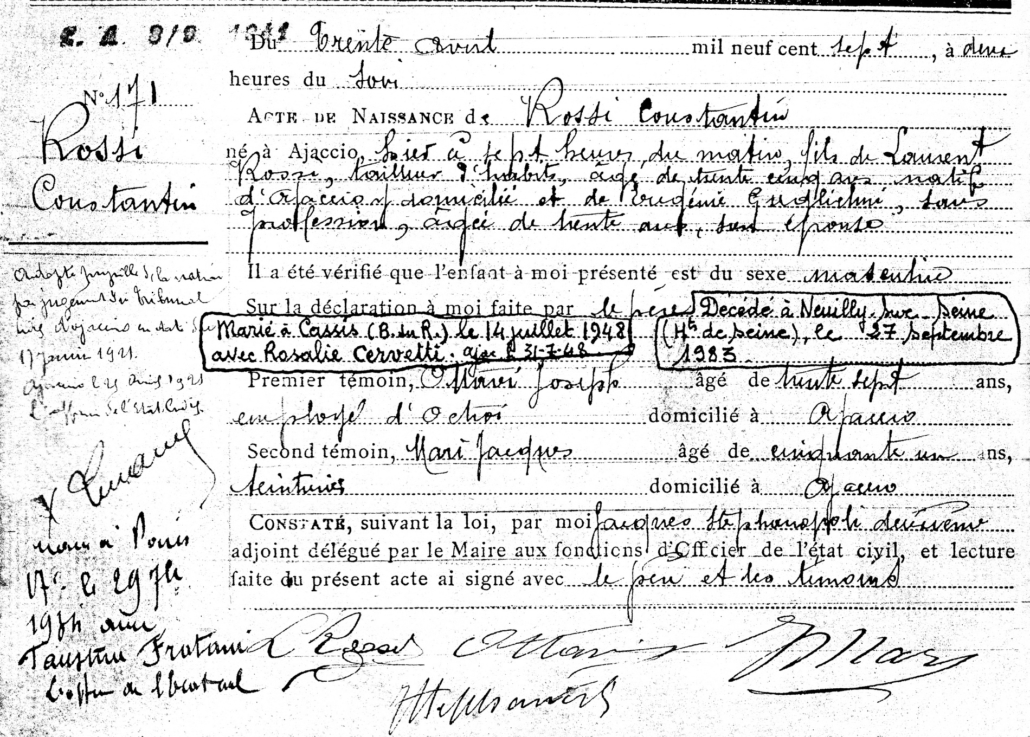 Du Trente avril mil neuf cent sept, à deux
heures du soir
N° 171
Rossi
Constantin
ACTE DE NAISSANCE de Rossi Constantin
né à Ajaccio hier à sept heures du matin, fils de Laurent
Rossi, tailleur d'habits, âgé de trente cinq ans, natif
d'Ajaccio y domicilié et de Eugénie Guglielmi, sans
profession, âgée de trente ans, son épouse
Il a été vérifié que l'enfant à moi présenté est du sexe masculin
Sur la déclaration à moi faite par le père
Décédé à Neuilly sur Seine
(Hts de Seine), le 27 septembre
1983.
Marié à Cassis (B. du R.) le 14 juillet 1948
avec Rosalie Cervetti. 31-7-48
Premier témoin, Ottavi Joseph âgé de trente sept ans,
employé d'Octroi domicilié à Ajaccio
Second témoin, Mari Jacques âgé de cinquante un ans,
teinturier domicilié à Ajaccio
CONSTATÉ, suivant la loi, par moi Jacques Stephanopoli deuxième
adjoint délégué par le Maire aux fonctions d'Officier de l'état civil, et lecture
faite du présent acte ai signé avec le père et les témoins
Adopté par la nation
par jugement du Tribunal
d'Ajaccio en date du
17 janvier 1921.
Ajaccio le 21 avril 1921
L'officier de l'Etat Civil
à Paris
17e le 29
avec
Faustine Fratani
L Rossi Ottavi Mari